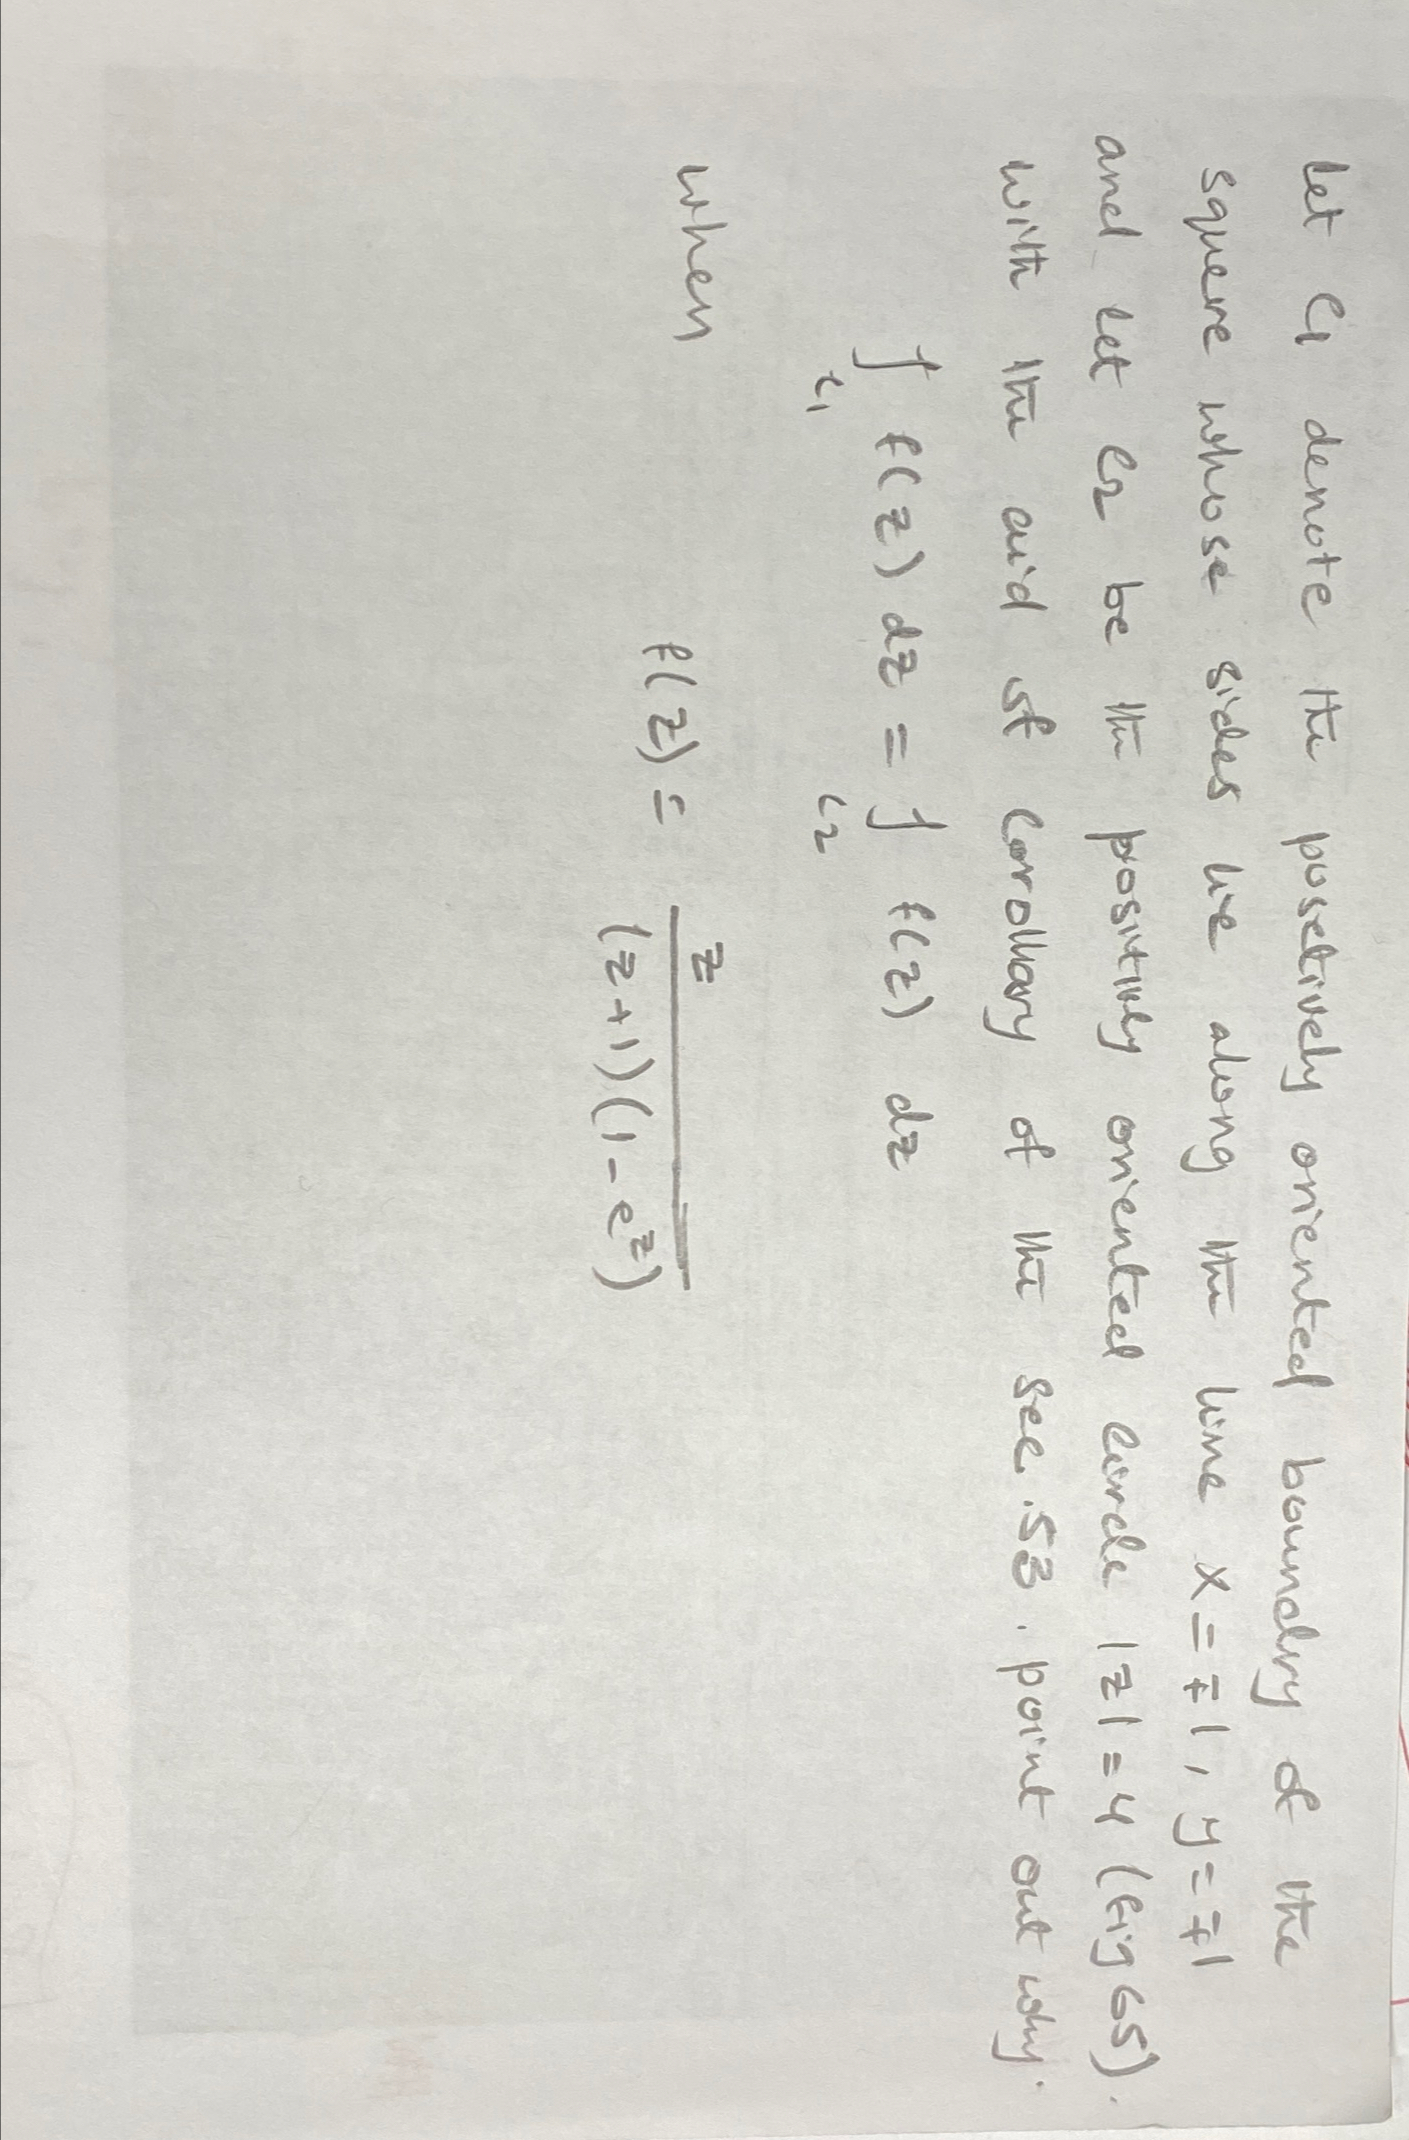 Let C1 denote the posetively oriented boundry of the
squere whose sides lie along the line x = ∓1, y = ∓1
and let C2 be the positively oriented circle |z| = 4 (fig 65).
with the aid of Corollary of the see. 53. point out why.
∫C1 f(z) dz = ∫C2 f(z) dz
when
f(z) = z / (z+1)(1-e^z)